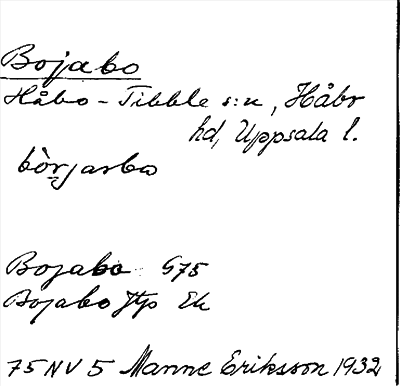 Bojabo
Håbo-Tibble s:n, Håbo
hd, Uppsala l.
bòrjarbo
Bojabo G75
Bojabo Jtp Ek
75 NV 5 Manne Eriksson 1932